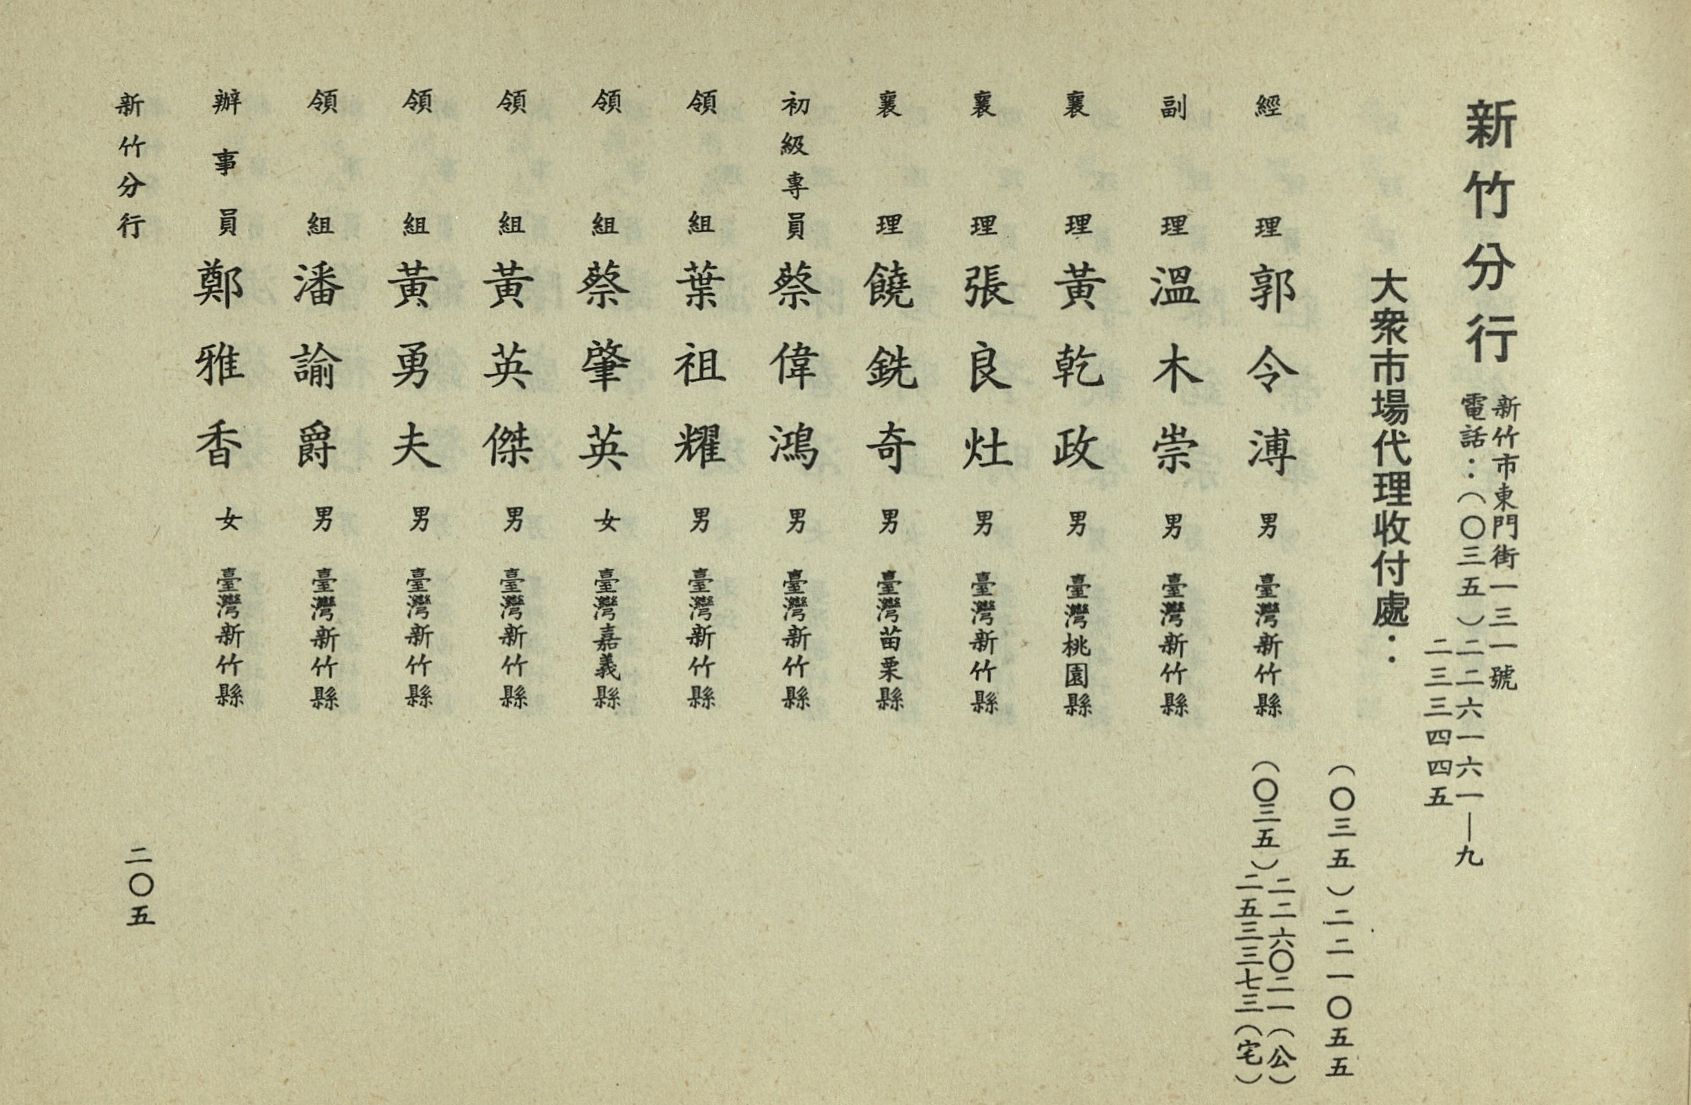 新竹分行
新竹市東門街一三一號
電話：（〇三五）二二六一六一—九
二三三四四五
大衆市場代理收付處：
（〇三五）二二一〇五五
經理 郭令溥 男 臺灣新竹縣 （〇三五）二二六〇二一（公）
二五三三七三（宅）
副理 溫木崇 男 臺灣新竹縣
襄理 黃乾政 男 臺灣桃園縣
襄理 張良灶 男 臺灣新竹縣
襄理 饒銑奇 男 臺灣苗栗縣
初級專員 蔡偉鴻 男 臺灣新竹縣
領組 葉祖耀 男 臺灣新竹縣
領組 蔡肇英 女 臺灣嘉義縣
領組 黃英傑 男 臺灣新竹縣
領組 黃勇夫 男 臺灣新竹縣
領組 潘諭爵 男 臺灣新竹縣
辦事員 鄭雅香 女 臺灣新竹縣
新竹分行
二〇五